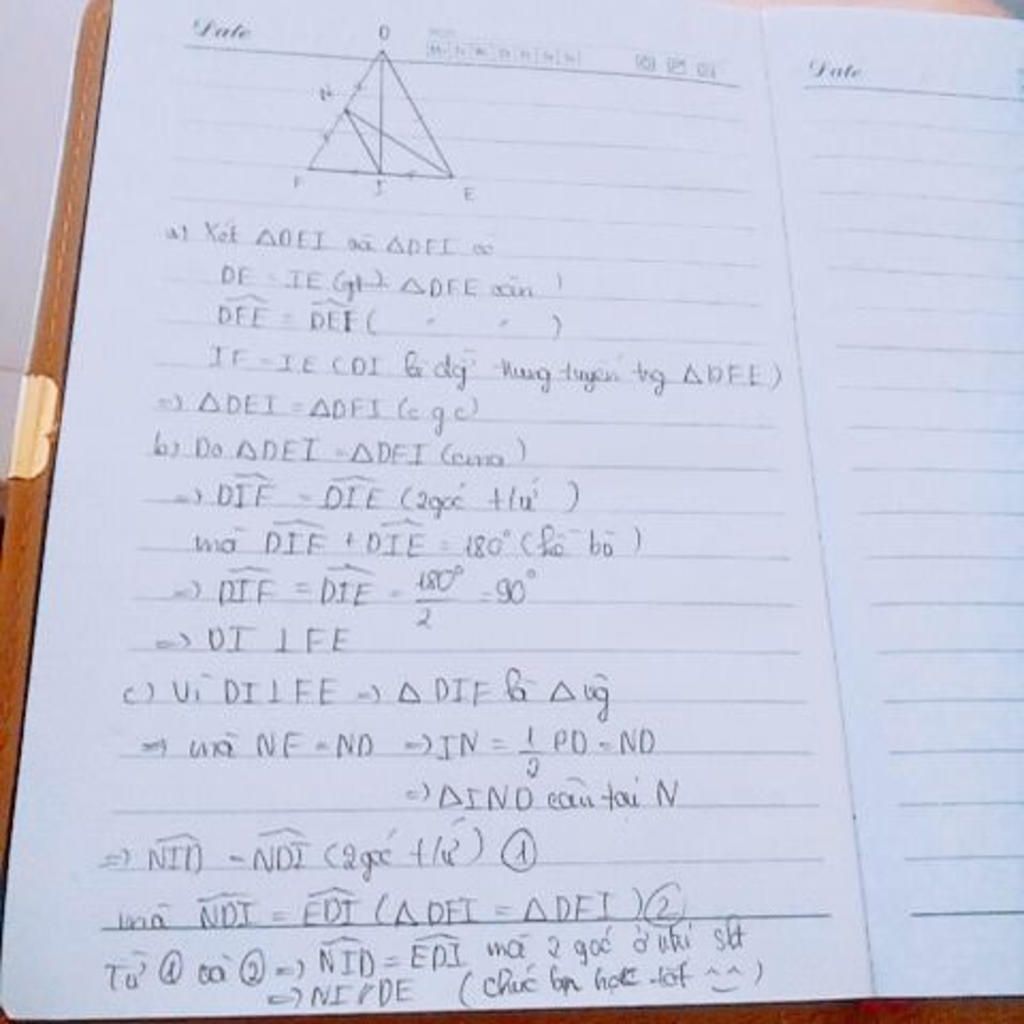 Date
D
N
F
I
E
Date
a) Xét ΔDEI và ΔDFI có
DF = IE (gt) ΔDFE cân )
DFE = DEF ( " " )
IF = IE (DI là đg trung tuyến trg ΔDFE)
=> ΔDEI = ΔDFI (c g c)
b) Do ΔDEI = ΔDFI (cma)
=> DIF = DIE (2 góc t/ứ )
mà DIF + DIE = 180° (kề bù)
=> DIF = DIE = 180°/2 = 90°
=> DI ⊥ FE
c) Vì DI ⊥ FE => Δ DIF là Δ vg
=> mà NF = ND => IN = 1/2 FD = ND
=> ΔIND cân tại N
=> NID = NDI (2 góc t/ứ) ①
mà NDI = EDI (ΔDEI = ΔDFI) ②
Từ ① và ② => NID = EDI mà 2 góc ở vị trí slt
=> NI // DE (chúc bạn học tốt ^^)